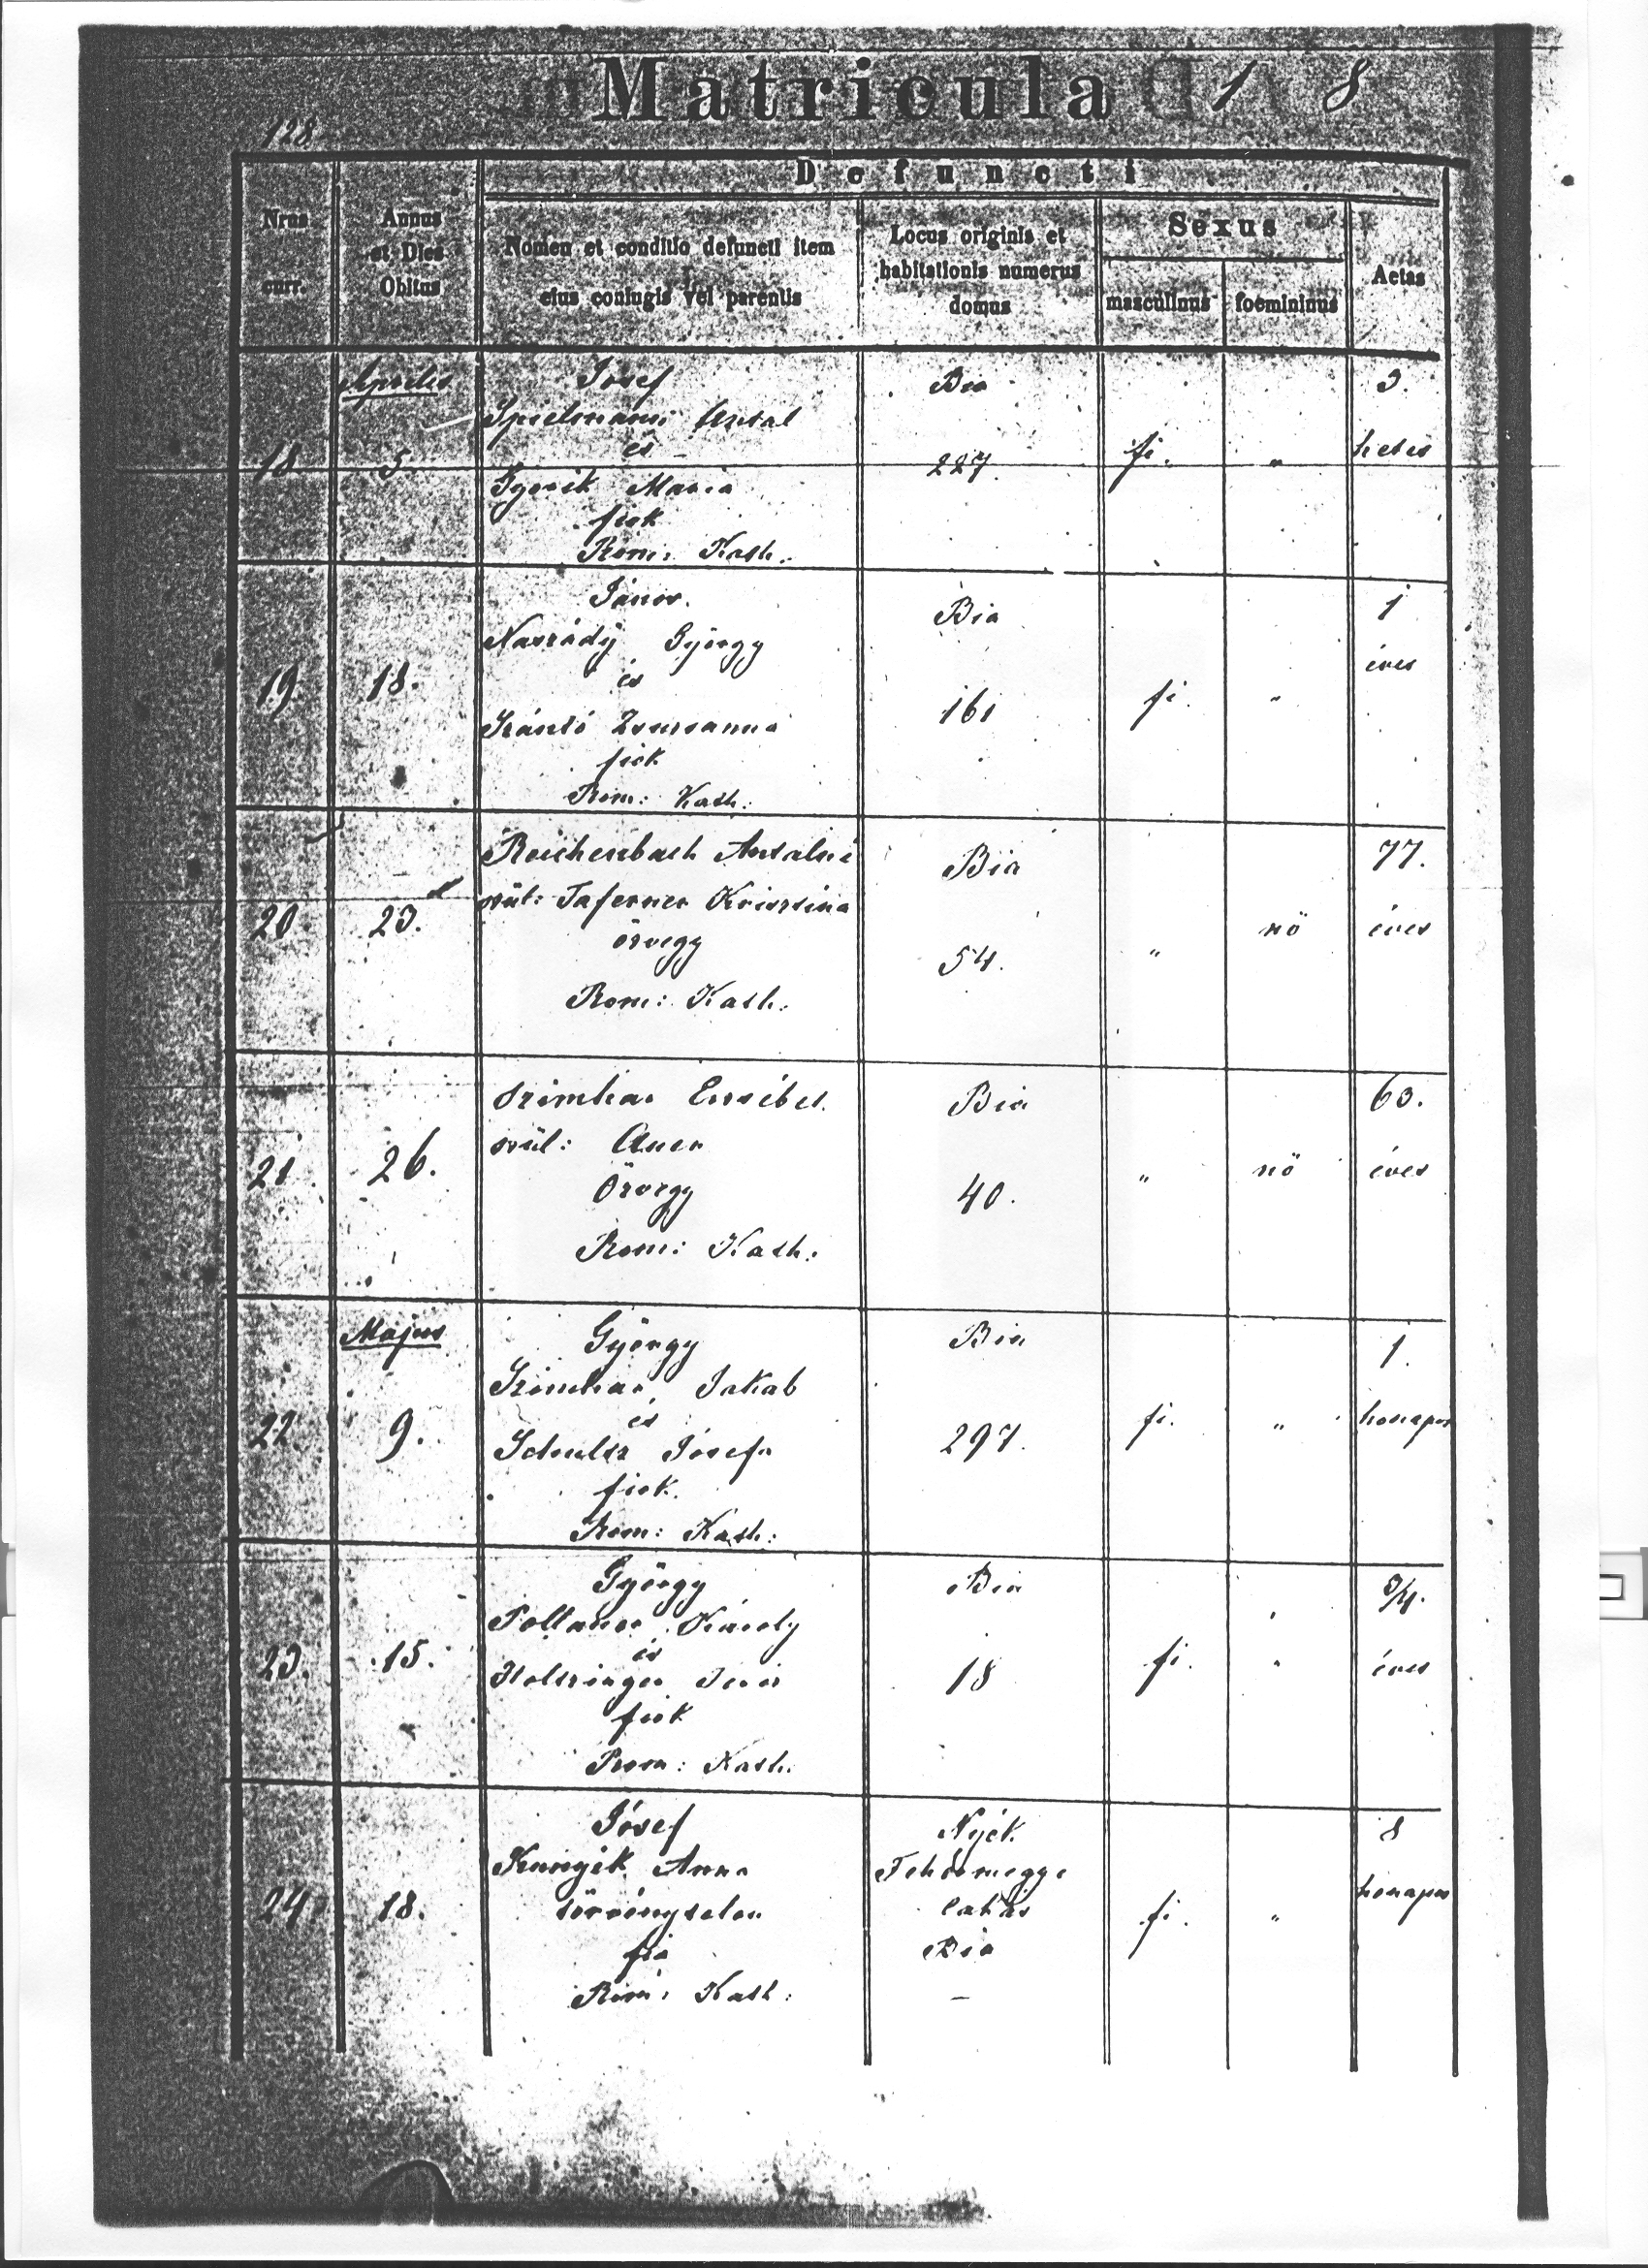 Matricula 1 8
128
Defuncti
Nrus curr.
Annus et Dies Obitus
Nomen et conditio defuncti item eius coniugis vel parentis
Locus originis et habitationis numerus domus
Sexus
masculinus
foemininus
Aetas
Aprilis
18 5.
Josef
Spielmann Antal
és
Mária
fiok
Rom: Kath:
Bia
227.
fi.
"
3.
hetes
19. 18.
János.
György
és
Szántó Zsuzsanna
fiok
Rom: Kath:
Bia
161
fi.
"
1
éves
20. 23.
Reichenbach Antalné
szül: Taferner Krisztina
özvegy
Rom: Kath:
Bia
54.
"
nö
77.
éves
21. 26.
Erzsébet.
szül: Auer
Özvegy
Rom: Kath:
Bia
40.
"
nö
60.
éves
Május
22. 9.
György
Jakab
és
Schultz Jósefa
fiok.
Rom: Kath:
Bia
297.
fi.
"
1.
honapos
23. 15.
György
Károly
és
Holtzinger
fiok
Rom: Kath:
Bia
18
fi.
"
3/4.
éves
24 18.
Jósef
Anna
törvénytelen
fia
Rom: Kath:
Nyék.
Fehérmegye
lakás
Bia
–
fi.
"
8
honapos